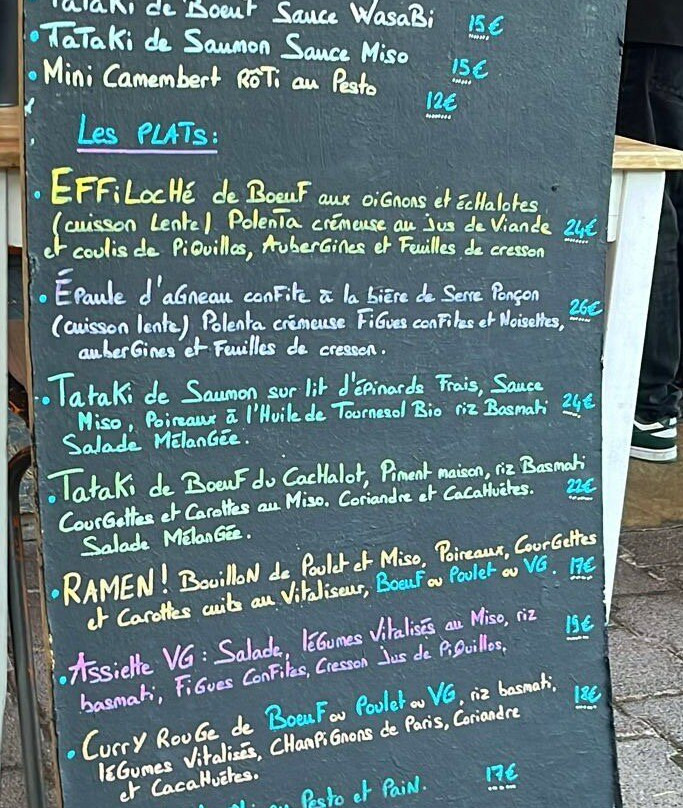 Tataki de Boeuf Sauce WasaBi 15€
• TaTaKi de Saumon Sauce Miso 15€
• Mini Camembert RôTi au Pesto 12€
Les PLATs:
• EFFiLocHé de BoeuF aux oiGnons et écHalotes
(cuisson Lente) PolenTa crémeuse au Jus de Viande 24€
et coulis de PiQuillos, AuberGines et Feuilles de cresson
• Épaule d'aGneau conFite à la bière de Serre Ponçon 26€
(cuisson lente) Polenta crémeuse FiGues conFites et Noisettes,
auberGines et Feuilles de cresson.
• Tataki de Saumon sur lit d'épinards Frais, Sauce
Miso, Poireaux à l'Huile de Tournesol Bio riz Basmati 24€
Salade MélanGée.
• Tataki de BoeuF du CacHalot, Piment maison, riz Basmati
CourGettes et Carottes au Miso. Coriandre et CacaHuètes. 22€
Salade MélanGée.
• RAMEN! BouilloN de Poulet et Miso, Poireaux, CourGettes
et Carottes cuits au Vitaliseur, BoeuF ou Poulet ou VG. 17€
• Assiette VG: Salade, léGumes Vitalisés au Miso, riz 19€
basmati, FiGues ConFites, Cresson Jus de PiQuillos,
• CurrY RouGe de BoeuF ou Poulet ou VG, riz basmati, 18€
léGumes Vitalisés, CHamPiGnons de Paris, Coriandre
et CacaHuètes.
Pesto et PaiN. 17€